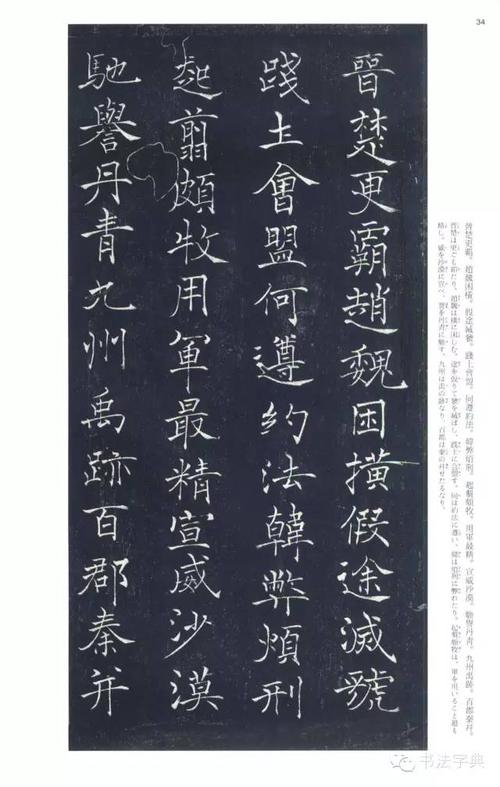 34
晉楚更霸趙魏困橫假途滅虢
踐土會盟何遵約法韓弊煩刑
起翦頗牧用軍最精宣威沙漠
馳譽丹青九州禹跡百郡秦并
晉楚更霸。趙魏困橫。假途滅虢。踐土會盟。何遵約法。韓弊煩刑。起翦頗牧。用軍最精。宣威沙漠。馳譽丹青。九州禹跡。百郡秦并。
晉楚は更ごも霸たり、趙魏は橫に困しむ。途を假りて虢を滅ぼし、踐土に會盟す。何は約法に遵い、韓は煩刑に弊れたり。起翦頗牧は、軍を用いること最も
精し。威を沙漠に宣べ、譽を丹青に馳す。九州は禹の跡なり、百郡は秦の并せたるなり。
书法字典